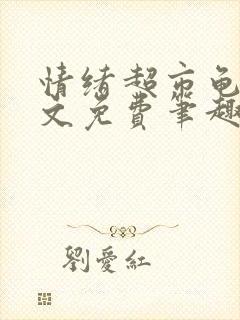 情绪超市龟
文免费笔趣
劉愛紅